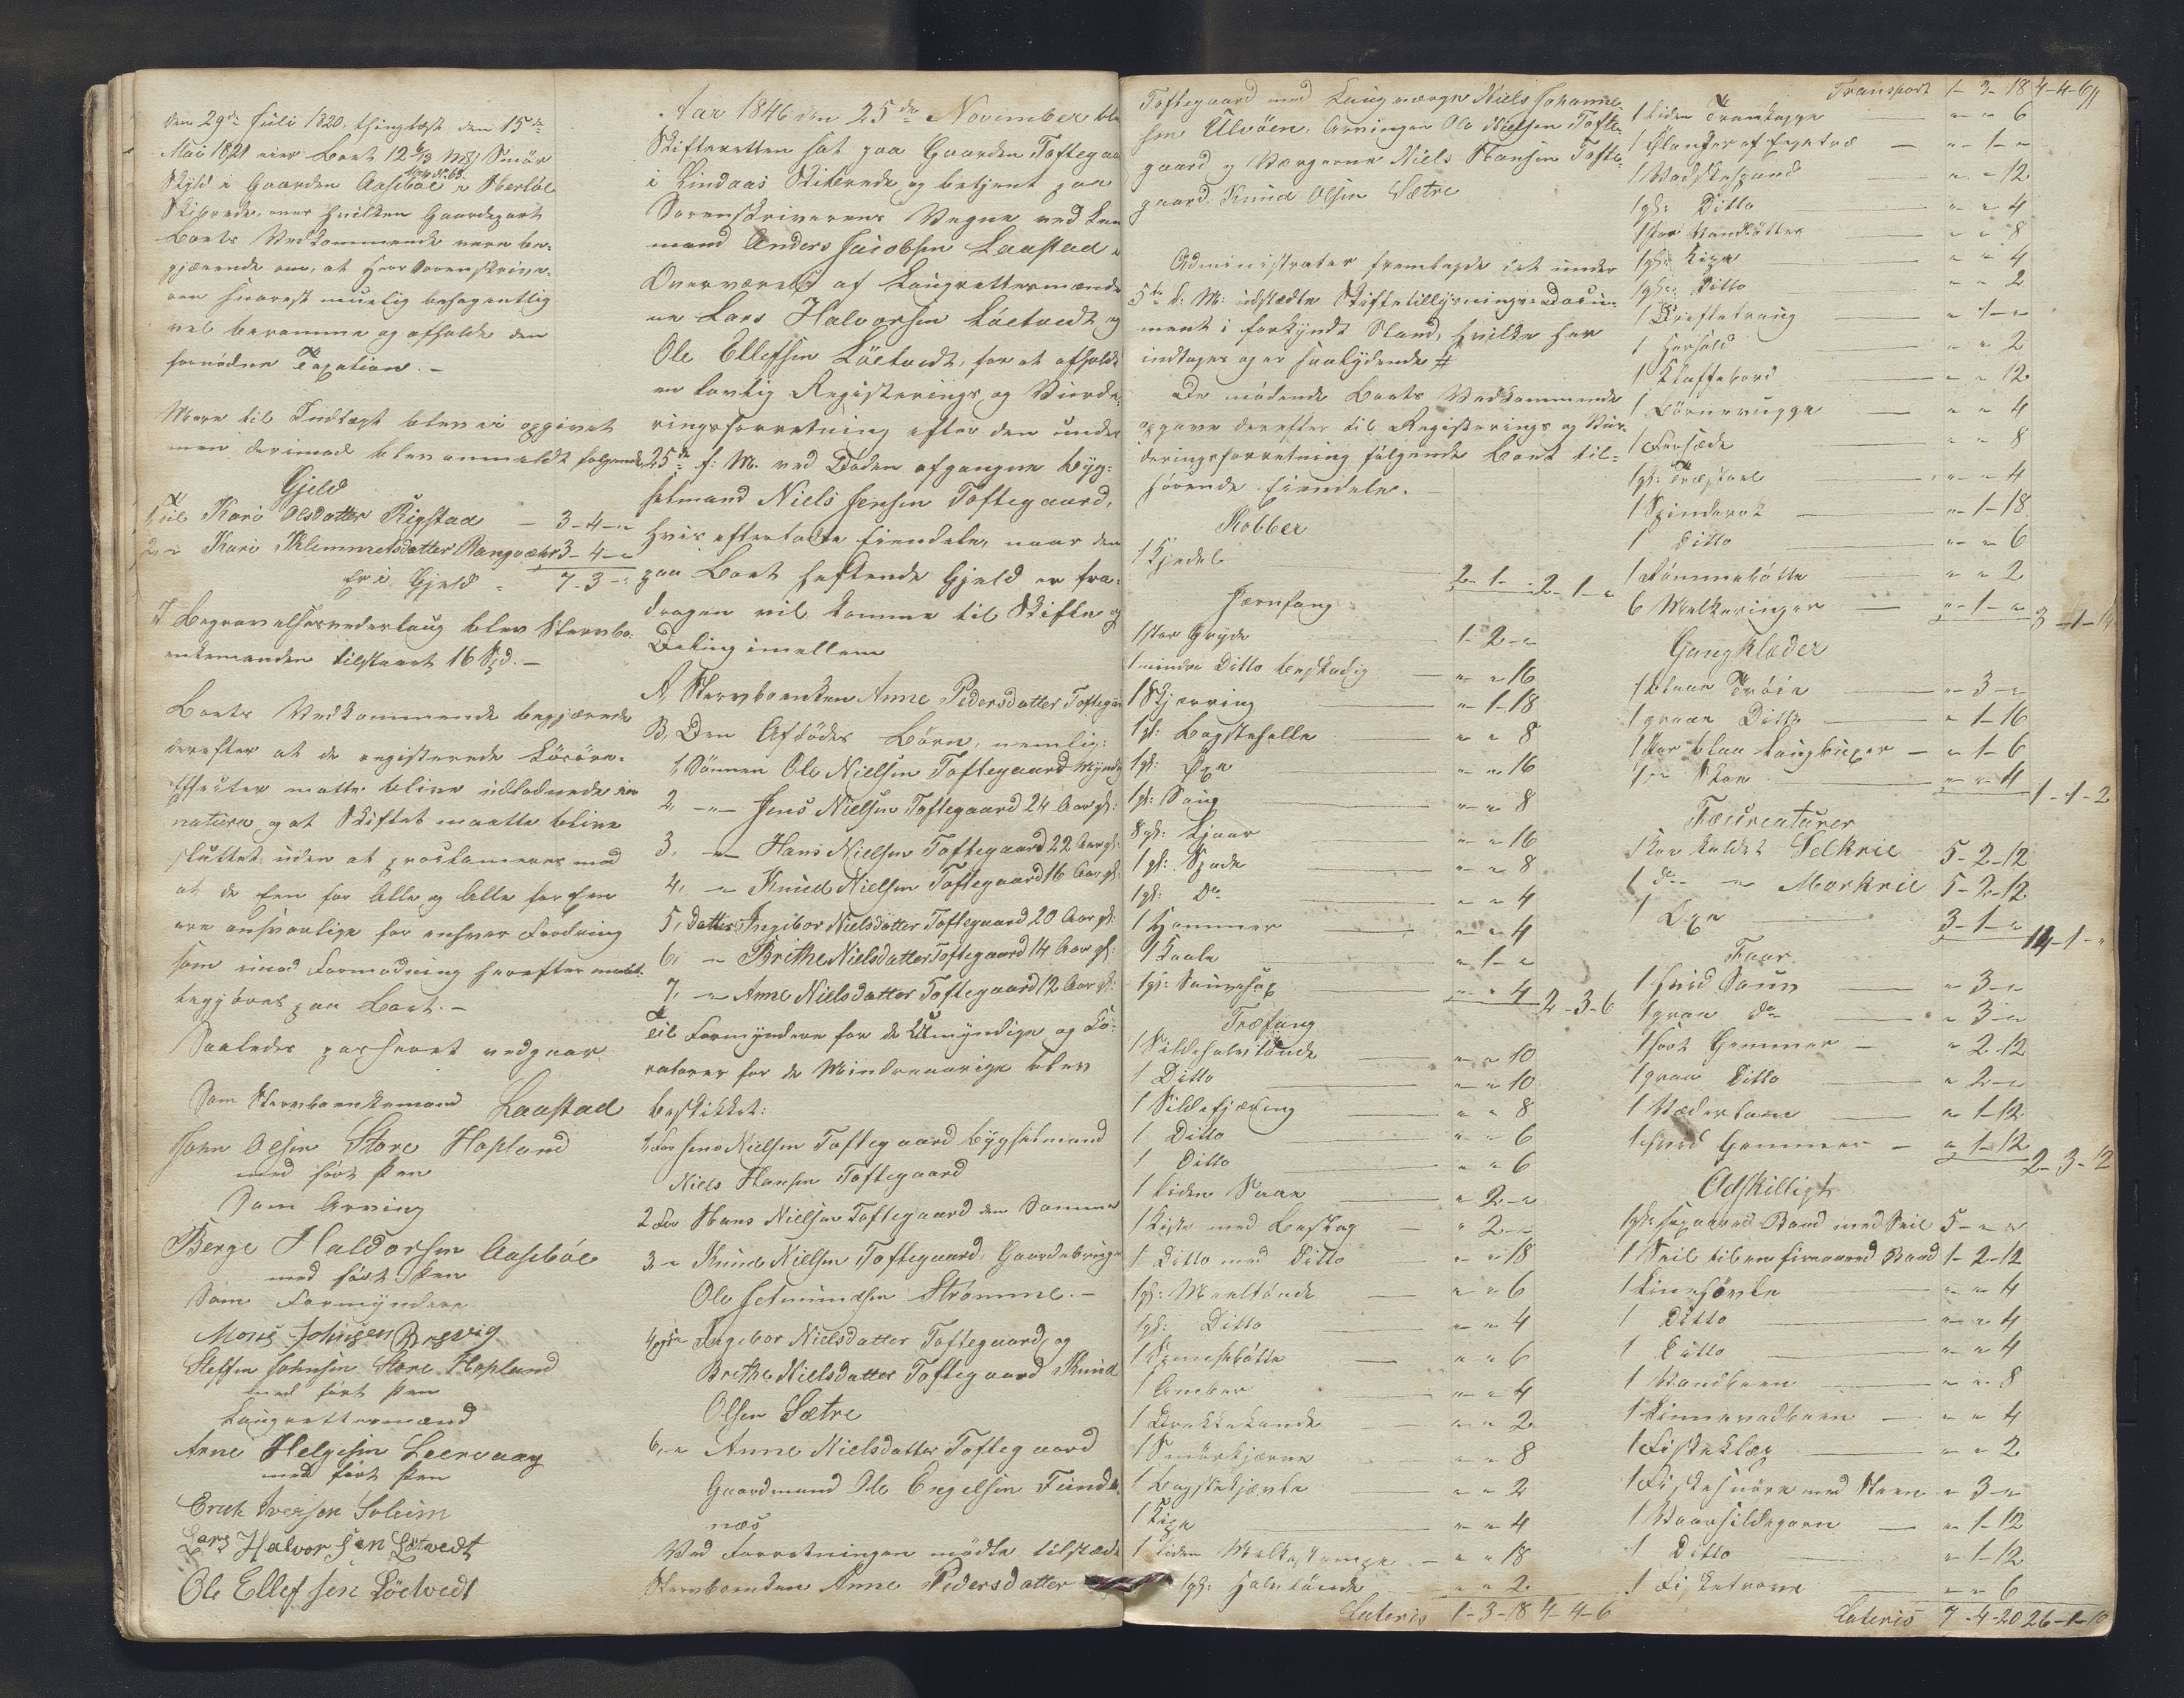 den 29de Juli 1820, thinglæst den 15de
Mai 1821 eier Boet 12 6/13 Mrk Smør
Løbe No 65
Skyld i Gaarden Aasebøe i Herløe
Skibrede, over hvilken Gaardepart
Boets Vedkommende vare be-
gjærende om, at Herr Sorenskrive-
ren snarest muelig behagentlig
vil beramme og afholde den
fornødne Taxation. -
Mere til Indtægt blev ei opgivet
men derimod blev anmeldt følgende
Gjeld
1, til Kari Olsdatter Rigstad - 3-4-"
2 " Kari Klemmetsdatter Rangvæhr 3-4-"
Er i Gjeld = 7-3-"
I Begravelsesvederlaug blev Stervbo-
enkemanden tilstaaet 16 Spd. -
Boets Vedkommende begjærede
derefter at de registerede Løsøre-
Effecter maatte blive udlodnede in
natura og at Skiftet maatte blive
sluttet uden at proclameres mod
at de Een for Alle og Alle for Een
ere ansvarlige for enhver Fordring
som imod Formodning herefter maatte
begjøres paa Boet. -
Saaledes passeret vedgaar.
Som Stervboenkemand Laastad
John Olsen Store Hopland
med ført Pen
Som Arving
Berge Haldorsen Aasebøe
med ført Pen
Som Formyndere
Mons Johnsen
Steffen Johnsen Store Hopland
med ført Pen
Laugrettesmænd
Arne Helgesen Leervaag
med ført Pen
Erick Iversen Soleim
Lars Halvorsen Løtvedt
Ole Ellefsen Löetvedt
Aar 1846 den 25de November blev
Skifteretten sat paa Gaarden Toftegaa
i Lindaas Skibrede og betjent paa
Sorenskriverens Vegne ved Lens
mand Anders Jacobsen Laastad i
Overværelse af Laugrettesmænde
ne Lars Halvorsen Löetvedt og
Ole Ellefsen Löetvedt, for at afholde
en lovlig Registerings og Vurde-
ringsforretning efter den under
25de f: M. ved Døden afgangne Byg-
selmand Niels Jensen Toftegaard,
hvis efterladte Eiendele, naar den
paa Boet heftende Gjeld er fra-
dragen vil komme til Skifte og
Deling imellem
A, Stervboenken Anne Pedersdatter Toftegaa
B, Den Afdødes Børn, nemlig:
1, Sønnen Ole Nielsen Toftegaard Myndig
2, -"- Jens Nielsen Toftegaard 24 Aar gl:
3, -"- Hans Nielsen Toftegaard 22 Aar gl:
4, -"- Knud Nielsen Toftegaard 16 Aar gl:
5, Datter Ingebor Nielsdatter Toftegaard 20 Aar gl:
6, -"- Brithe Nielsdatter Toftegaard 14 Aar gl:
7, -"- Anne Nielsdatter Toftegaard 12 Aar gl:
Til Formyndere for de Umyndige og Cu-
ratorer for de Mindreaarige blev
beskikket:
1, For Jens Nielsen Toftegaard Bygselmand
Niels Hansen Toftegaard
2 For Hans Nielsen Toftegaard den Samme
3 " Knud Nielsen Toftegaard, Gaardebruger
Ole Jetmundsen Strømme. -
4 og 5 " Ingebor Nielsdatter Toftegaard og
Brethe Nielsdatter Toftegaard Knud
Olsen Sætre
6, " Anne Nielsdatter Toftegaard
Gaardmand Ole Engelsen Fände
næs
Ved Forretningen mødte tilstæde
Stervboenken Anne Pedersdatter
Toftegaard med Laugværge Niels Johanne-
sen Ulvøen. Arvingen Ole Nielsen Tofte-
gaard og Værgerne Niels Hansen Tofte-
gaard, Knud Olsen Sætre
Administrator fremlagde det under
5te d: M: udstædte Skiftetillysnings-Docu-
ment i forkyndt Stand, hvilke her
indtages og er saalydende #
De mødende Boets Vedkommende
opgave derefter til Registerings og Vur-
deringsforretning følgende Boet til-
hørende Eiendele. -
Kobber
1 Kjedel 2-1-" 2-1-"
Jernfang
1 stor Gryde 1-2-"
1 mindre Ditto beskadig " " 16
1 Skjærring " 1-18
1 gl: Bagstehelle " " 8
1 gl: Øxe " " 16
1 gl: Saug " " 8
8 gl: Ljaar " " 16
1 gl: Spade " " 8
1 gl: Do " " 4
1 Hammer " " 4
1 Kaale " 1-"
1 gl: Sauesax " " 4 2-3-6
Træfang
1 Sildehalvtønde " " 10
1 Ditto " " 10
1 Sildefjæring " " 8
1 Ditto " " 6
1 Ditto " " 6
1 liden Saae " 2-"
1 Kiste med Beslag " 2-"
1 Ditto med Ditto " " 18
1 gl: Meeltønde " " 6
1 gl: Ditto " " 4
1 " " 6
1 Ambar " " 4
1 Drikkekande " " 2
1 Smørkjærne " " 8
1 Bagstekjævle " " 2
1 Kipe " " 4
1 liden Melkestampe " " 18
1 gl: Halvtønde " " 2
Lateris 1-3-18 4-4-6
Transport 1-3-18 4-4-6
1 liden " " 6
1 af Egetræ " 1-"
1 Vadskespand " " 12
1 gl: Ditto " " 4
1 Par Vandbøtter " " 8
1 gl: Kipe " " 4
1 gl: Ditto " " 2
1 Drøftetraug " 1-"
1 Haarsold " " 2
1 Klaffebord " " 12
1 Børnevugge " " 4
1 " " 8
1 gl: Træstoel " " 4
1 Spinderok " 1-18
1 Ditto " " 6
1 Rømmebøtte " " 2
6 Melkeringer " 1-" 3-1-14
Gangklæder
1 blaae Trøie " 3-"
1 graae Ditto " 1-16
1 Par blaa Langbuxer " 1-6
1 " Skoe " " 4 1-1-2
Fæcreaturer
1 Koe kaldet Selkrie 5-2-12
1 do " Morkrie 5-2-12
1 Oxe 3-1-" 14-1-"
Faar
1 hvid Sau " 3-"
1 graa do " 3-"
1 sort Gemmer " 2-12
1 graa Ditto " 2-"
1 Væderlam " 1-12
1 hvid Gemmer " 1-12 2-3-12
Adskilligt
1 gl: sexaared Baad med Seil 5-"-"
1 Seil til en fireaared Baad 1-2-12
1 " " 4
1 Ditto " " 4
1 Ditto " " 4
1 " " 8
1 " " 4
1 " " 2
1 Fiskesnøre med Steen " 3-"
1 Vaarsildegarn " 1-12
1 Ditto " 1-12
1 " " 6
Lateris 7-4-20 26-1-10